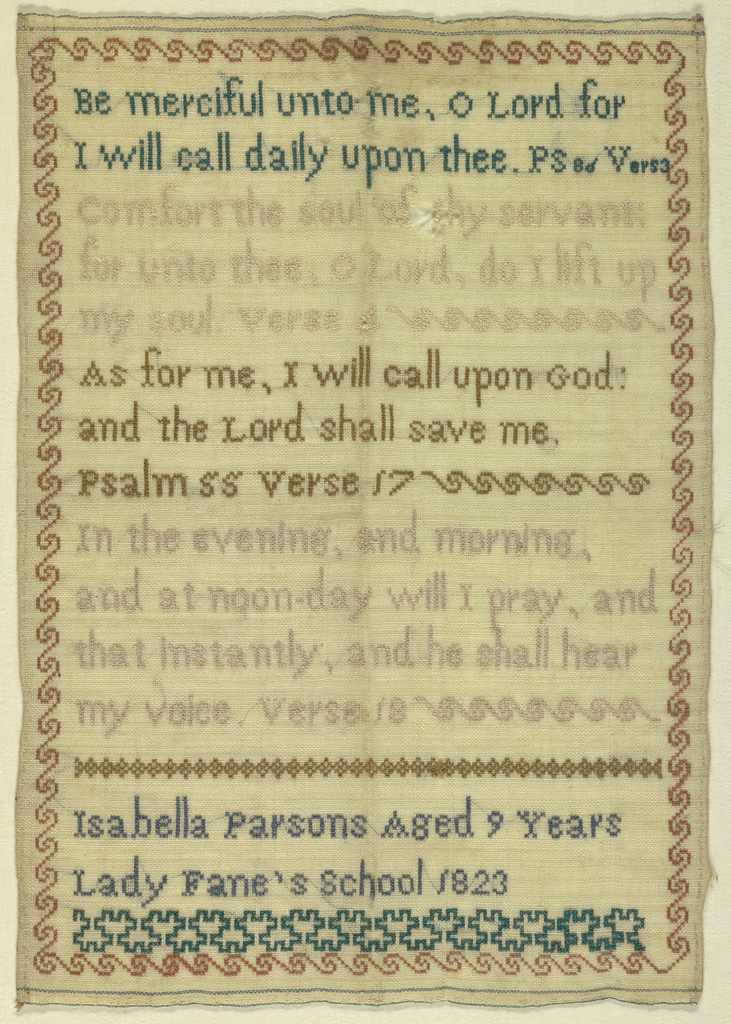 Be merciful unto me, O Lord for
I will call daily upon thee. Ps 86 Vers3
Comfort the soul of thy servant:
for unto thee, O Lord, do I lift up
my soul. Verse 4
As for me, I will call upon God:
and the Lord shall save me.
Psalm 55 Verse 17
In the evening, and morning,
and at noon-day will I pray, and
that instantly, and he shall hear
my voice. Verse 18
Isabella Parsons Aged 9 Years
Lady Fane's School 1823